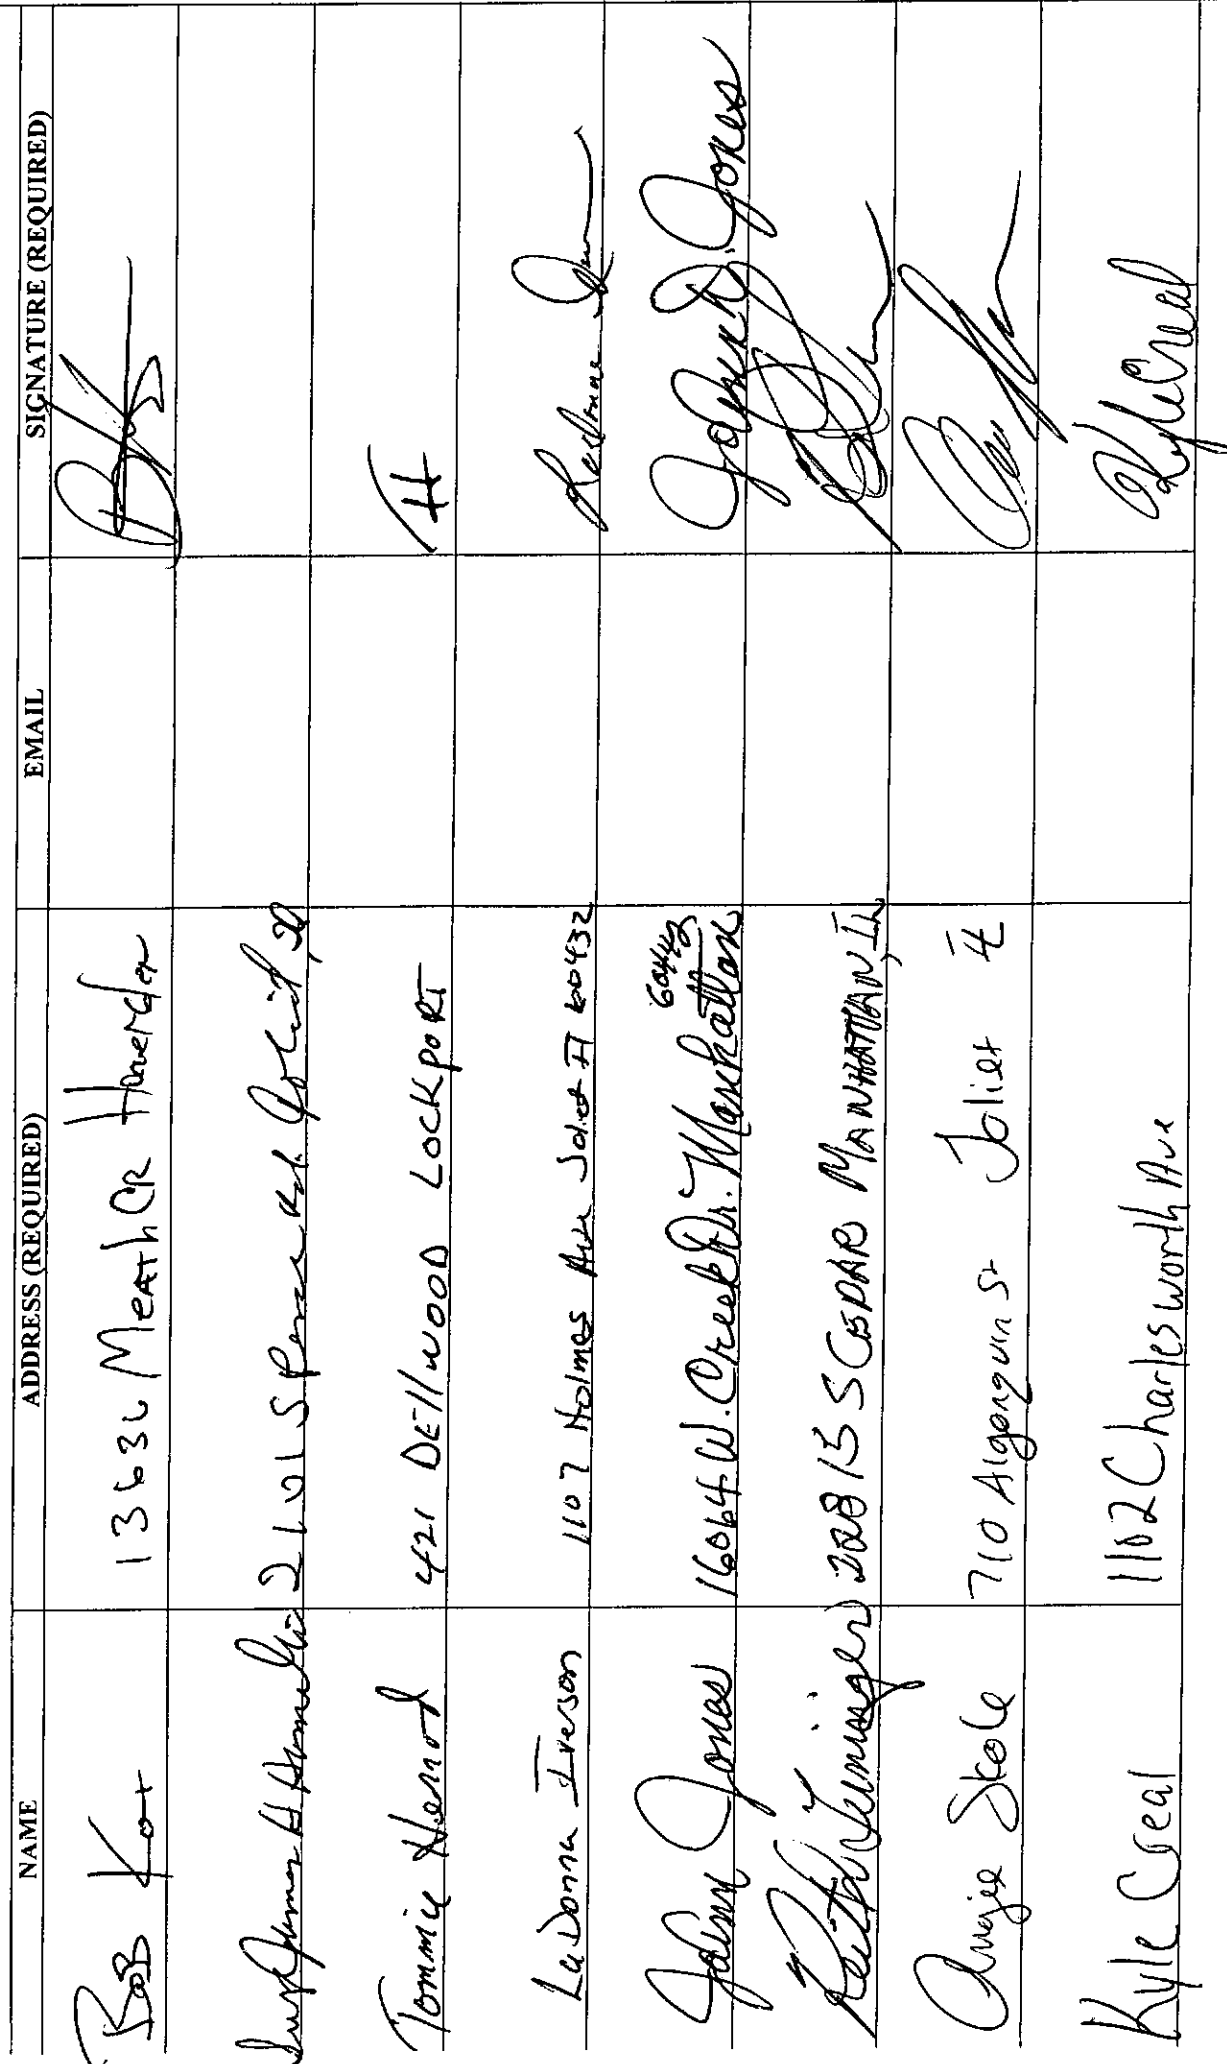 NAME ADDRESS (REQUIRED) EMAIL SIGNATURE (REQUIRED)
Bob Kot 13636 Meath CR Homerden
James H 2101 Spencer Rd. Joliet, Il
Tommie Hernod 421 DEllwOOD LOCKpORT TH
LaDonna Iverson 1107 Holmes Ave Joliet Il 60432
60442
Johnny Jones 16064 W. Creek Dr. Manhattan Johnny D. Jones
Keith Yuniger 22815 S CEDAR MANHATTAN, IL
Angie Skole 710 Algonquin St Joliet Il
Kyle Creal 1102 Charlesworth Ave Kyle Creal